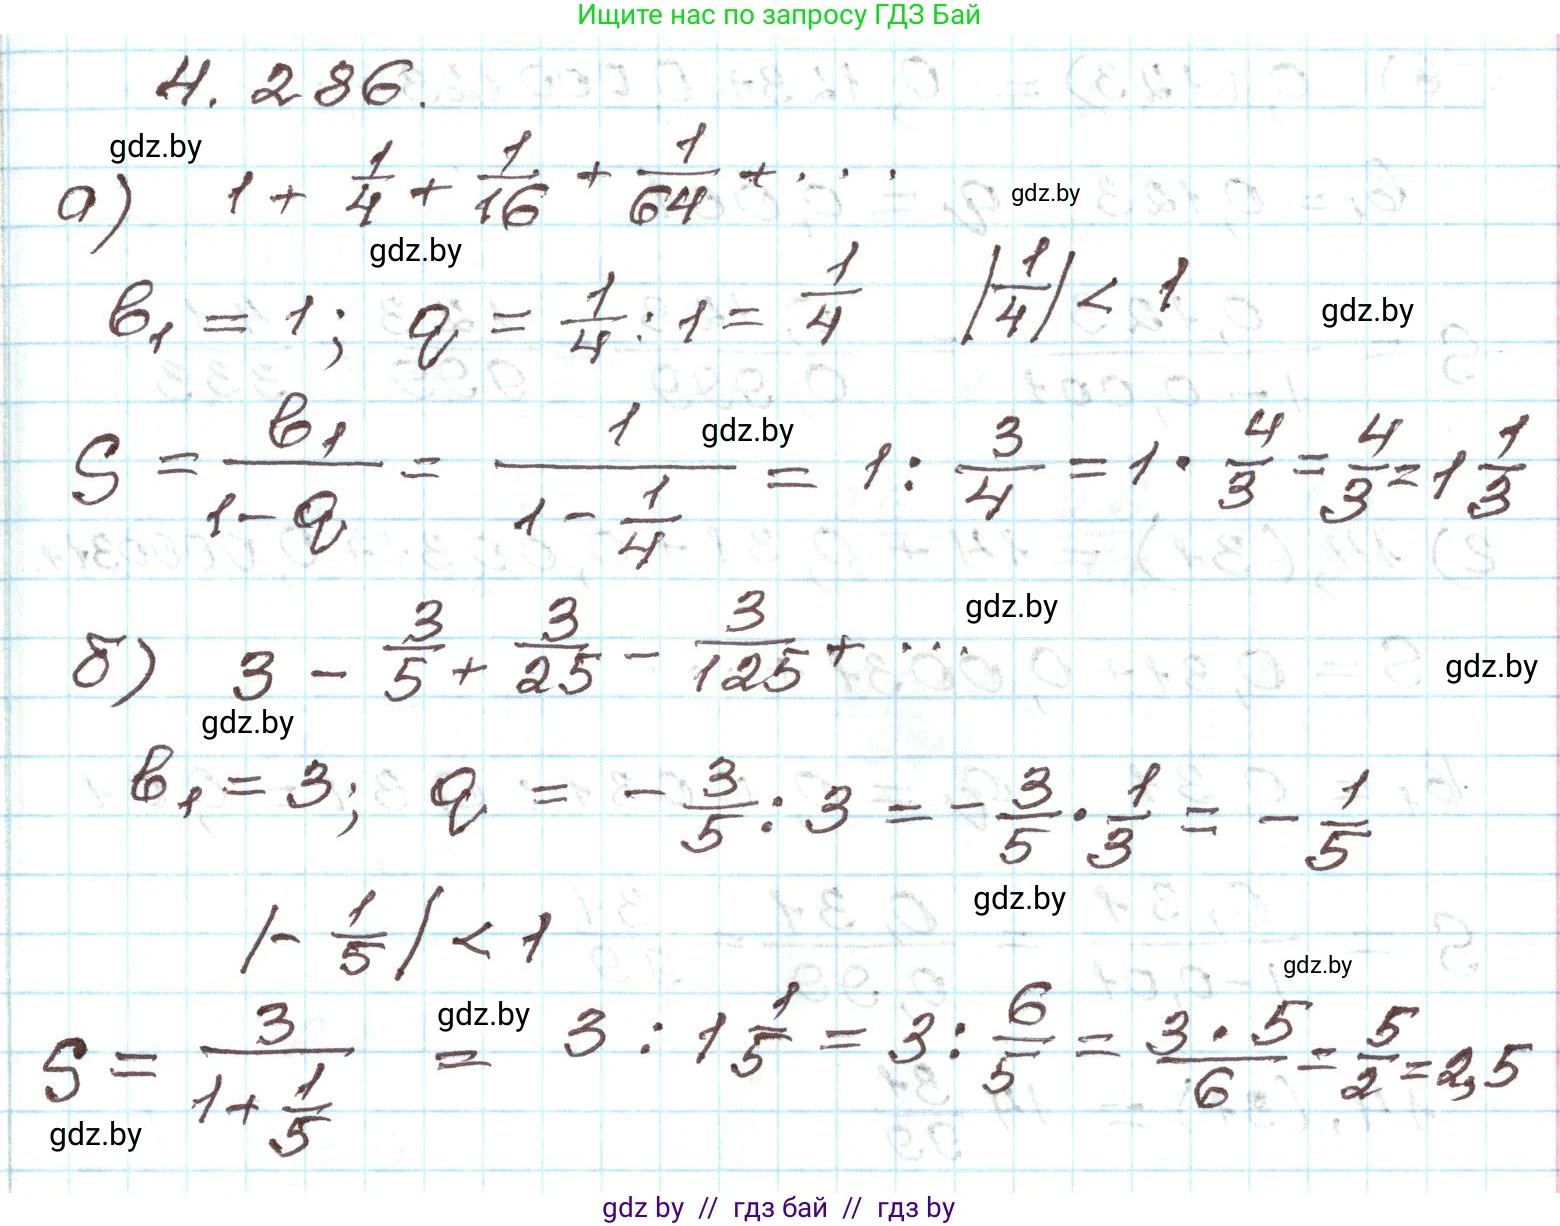 Ищите нас по запросу ГДЗ Бай
4.286.
gdz.by
а) 1 + 1/4 + 1/16 + 1/64 + ...
gdz.by
gdz.by
b₁ = 1; q = 1/4 : 1 = 1/4 |1/4| < 1
gdz.by
S = b₁/(1-q) = 1/(1 - 1/4) = 1 : 3/4 = 1 · 4/3 = 4/3 = 1 1/3
gdz.by
б) 3 - 3/5 + 3/25 - 3/125 + ...
gdz.by
gdz.by
gdz.by
b₁ = 3; q = -3/5 : 3 = -3/5 · 1/3 = -1/5
gdz.by
|-1/5| < 1
gdz.by
S = 3/(1 + 1/5) = 3 : 1 1/5 = 3 : 6/5 = (3 · 5)/6 = 5/2 = 2,5
gdz.by
gdz.by
gdz by // гдз бай // гдз by